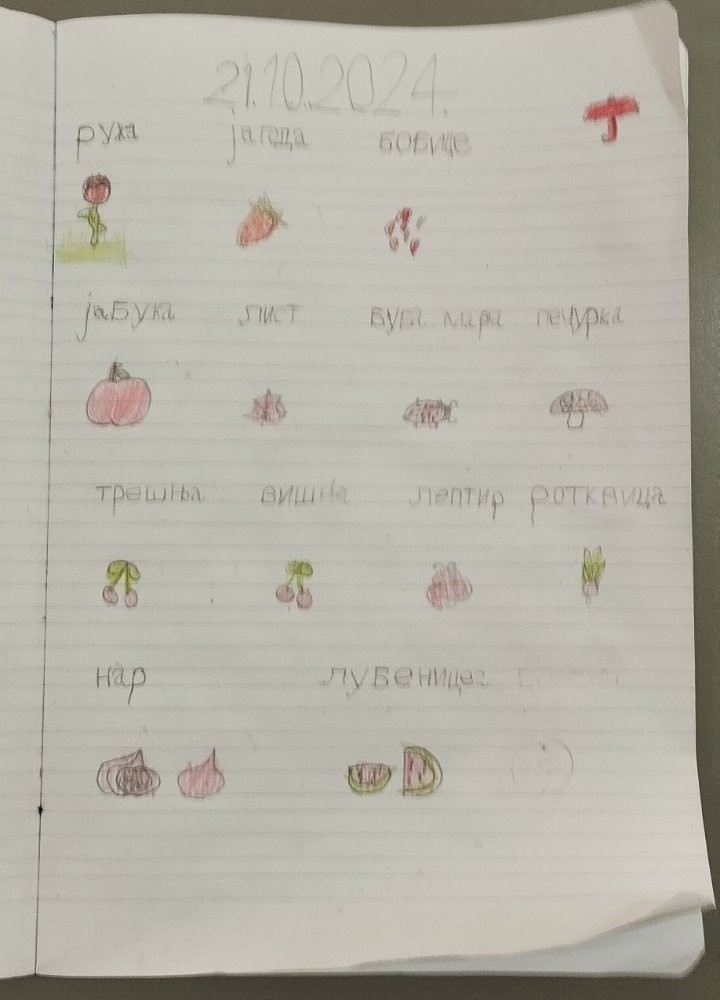 21.10.2024.
ружа јагода бобице
јабука лист буба мара печурка
трешња вишња лептир ротквица
нар лубеница